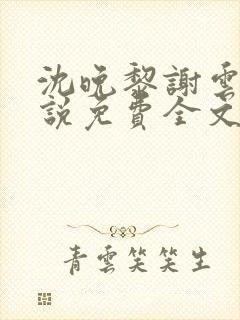 沈晚黎謝雲
說免費全文
青雲笑笑生